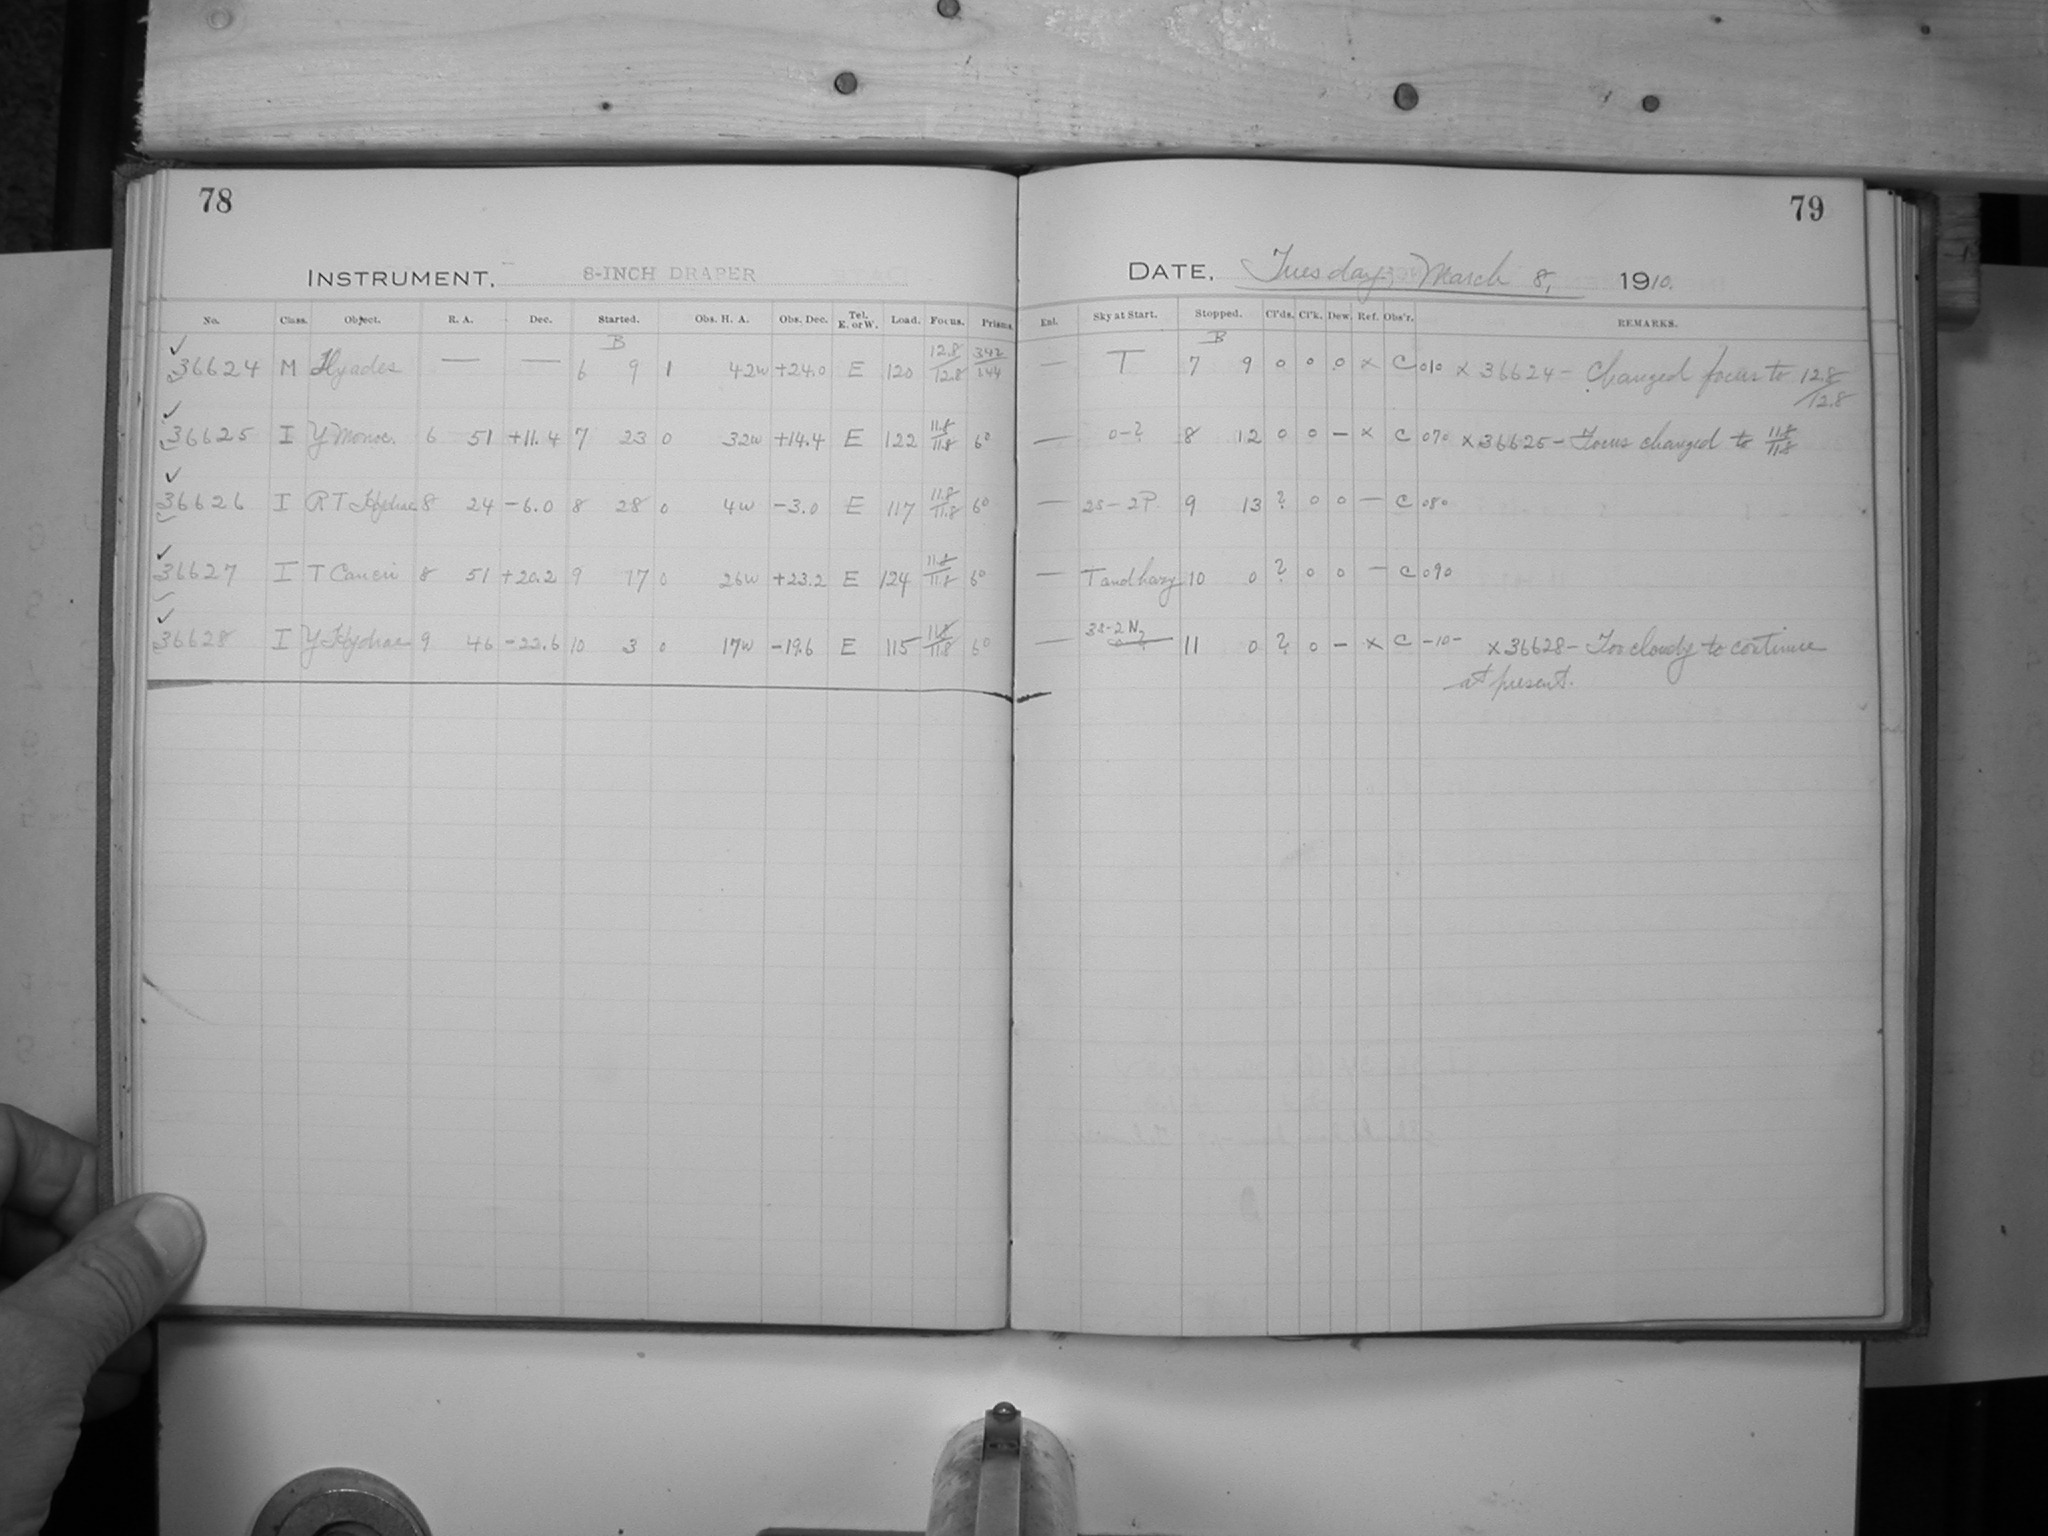 78
79
INSTRUMENT. 8-INCH DRAPER
DATE, Tuesday, March 8, 1910.
No. Class. Object. R. A. Dec. Started. Obs. H. A. Obs. Dec. Tel. E. or W. Load. Focus. Prisms. Enl. Sky at Start. Stopped. Cl'ds. Cl'k. Dew. Ref. Obs'r. REMARKS.
B B
36624 M Hyades — — 6 9 1 42w +24.0 E 120 12.8/12.8 342/144 — T 7 9 0 0 0 x C 010 x 36624 – Changed focus to 12.8/12.8
36625 I Y Monoc. 6 51 +11.4 7 23 0 32w +14.4 E 122 11.8/11.8 60 — 0-? 8 12 0 0 – x C 070 x 36625 – Focus changed to 11.8/11.8
36626 I RT Hydrae 8 24 -6.0 8 28 0 4w -3.0 E 117 11.8/11.8 60 — 2S-2P 9 13 ? 0 0 — C 080
36627 I T Cancri 8 51 +20.2 9 17 0 26w +23.2 E 124 11.8/11.8 60 — T and hazy 10 0 ? 0 0 — C 090
36628 I Y Hydrae 9 46 -22.6 10 3 0 17w -19.6 E 115 11.8/11.8 60 — 3S-2N? 11 0 ? 0 – x C -10- x 36628 – Too cloudy to continue
at present.